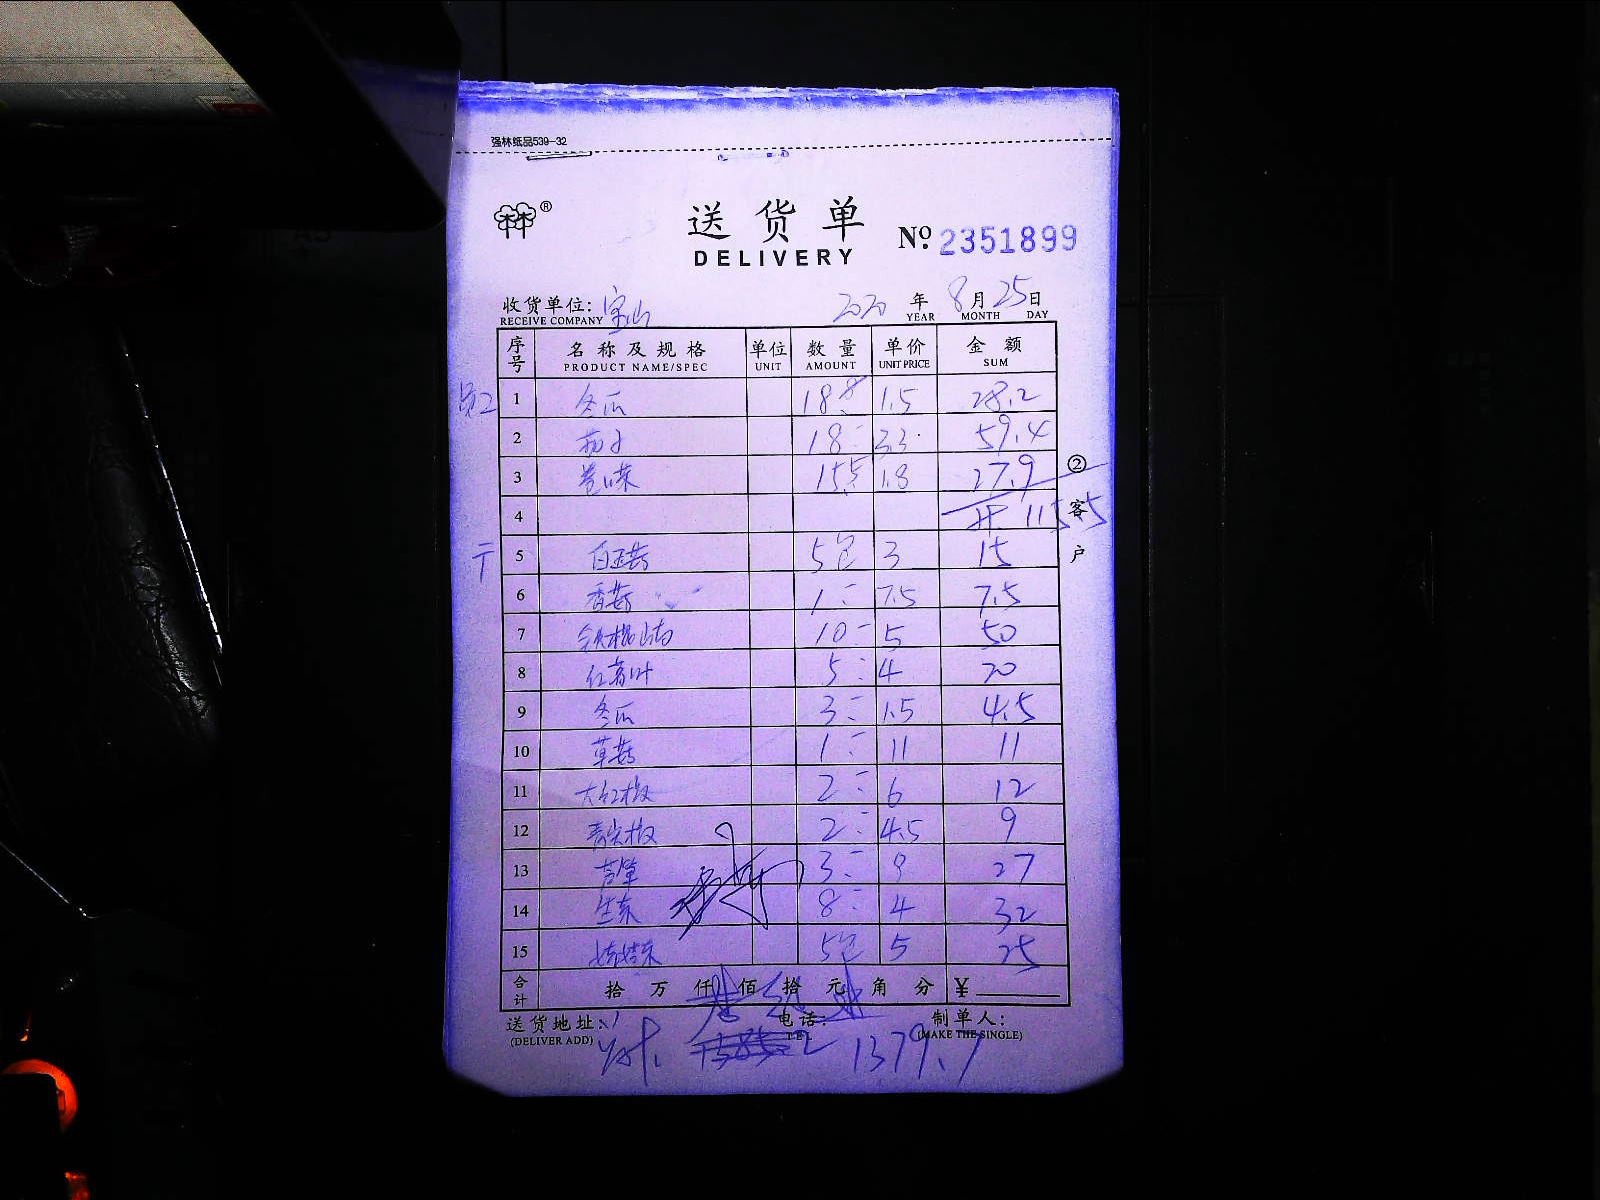 强林纸品539-32
®
送货单
DELIVERY
№ 2351899
收货单位: 宝山 2020 年 8 月 25 日
RECEIVE COMPANY YEAR MONTH DAY
序号 名称及规格 单位 数量 单价 金额
PRODUCT NAME/SPEC UNIT AMOUNT UNIT PRICE SUM
1 冬瓜 18.8 1.5 28.2
2 茄子 18 3.3 59.4
3 15.5 1.8 27.9
4 115.5
5 白玉菇 5包 3 15
6 香菇 1 7.5 7.5
7 铁棍山药 10 5 50
8 红薯叶 5 4 20
9 冬瓜 3 1.5 4.5
10 草菇 1 11 11
11 大红椒 2 6 12
12 青尖椒 2 4.5 9
13 芦笋 3 9 27
14 生菜 8 4 32
15 5包 5 25
② 客户
合计 拾 万 仟 佰 拾 元 角 分 ¥
送货地址: 电话: 制单人:
(DELIVER ADD) TEL (MAKE THE SINGLE)
1379.7